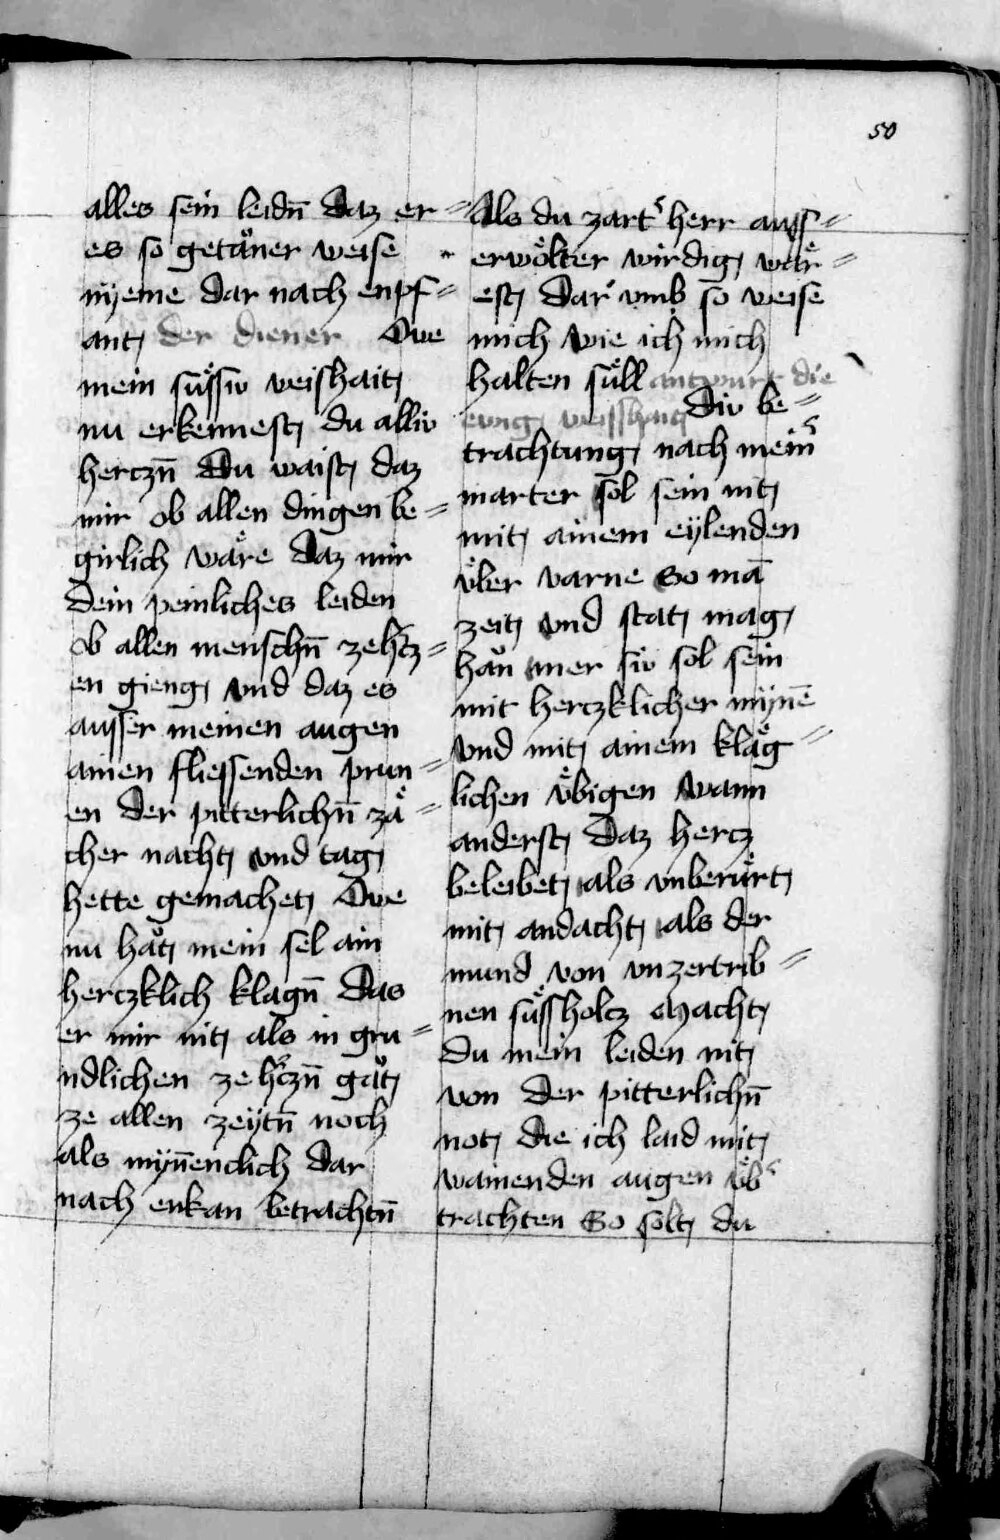 50
alles sein leidn̄ daz er=
es so getäner weise
nyeme dar nach enpf=
ant der diener Owe
mein sůssiv veishait
nu erkennest du alliv
herczn̄ Du waist daz
mir ob allen dingen be=
girlich wäre daz mir
dein peinliches leiden
ob allen menschn̄ ze hʼcz=
en gieng vnd daz es
ausser meinen augen
ainen fliessenden prun=
en der pitterlichn̄ zä=
cher nacht vnd tag
hette gemachet Owe
nu hät mein sel ain
herczklich klagn̄ Das
er mir nit als in gru=
ndlichen ze hʼczn̄ gät
ze allen zeytn̄ noch
als myn̄enclich dar
nach enkan betrachtn̄
Als du zartʼ herr auss=
erwölter wirdig wär=
est Darʼ vmb so weise
mich wie ich mich
halten süll antwurt die
ewig weisshait Div be=
trachtung nach meinʼ
marter sol sein nit
mit ainem eylenden
über varne So mā
zeit vnd stat mag
hän mer siv sol sein
mit herczklicher myn̄ē
vnd mit ainem kläg=
lichen übigen wann
anderst daz hercz
beleibet als vnberürt
mit andacht als der
mund von vnzertrib=
nen süssholcz Macht
du mein leiden nit
von der pitterlichn̄
not die ich laid mit
wainenden augen übʼ
trachten So solt du